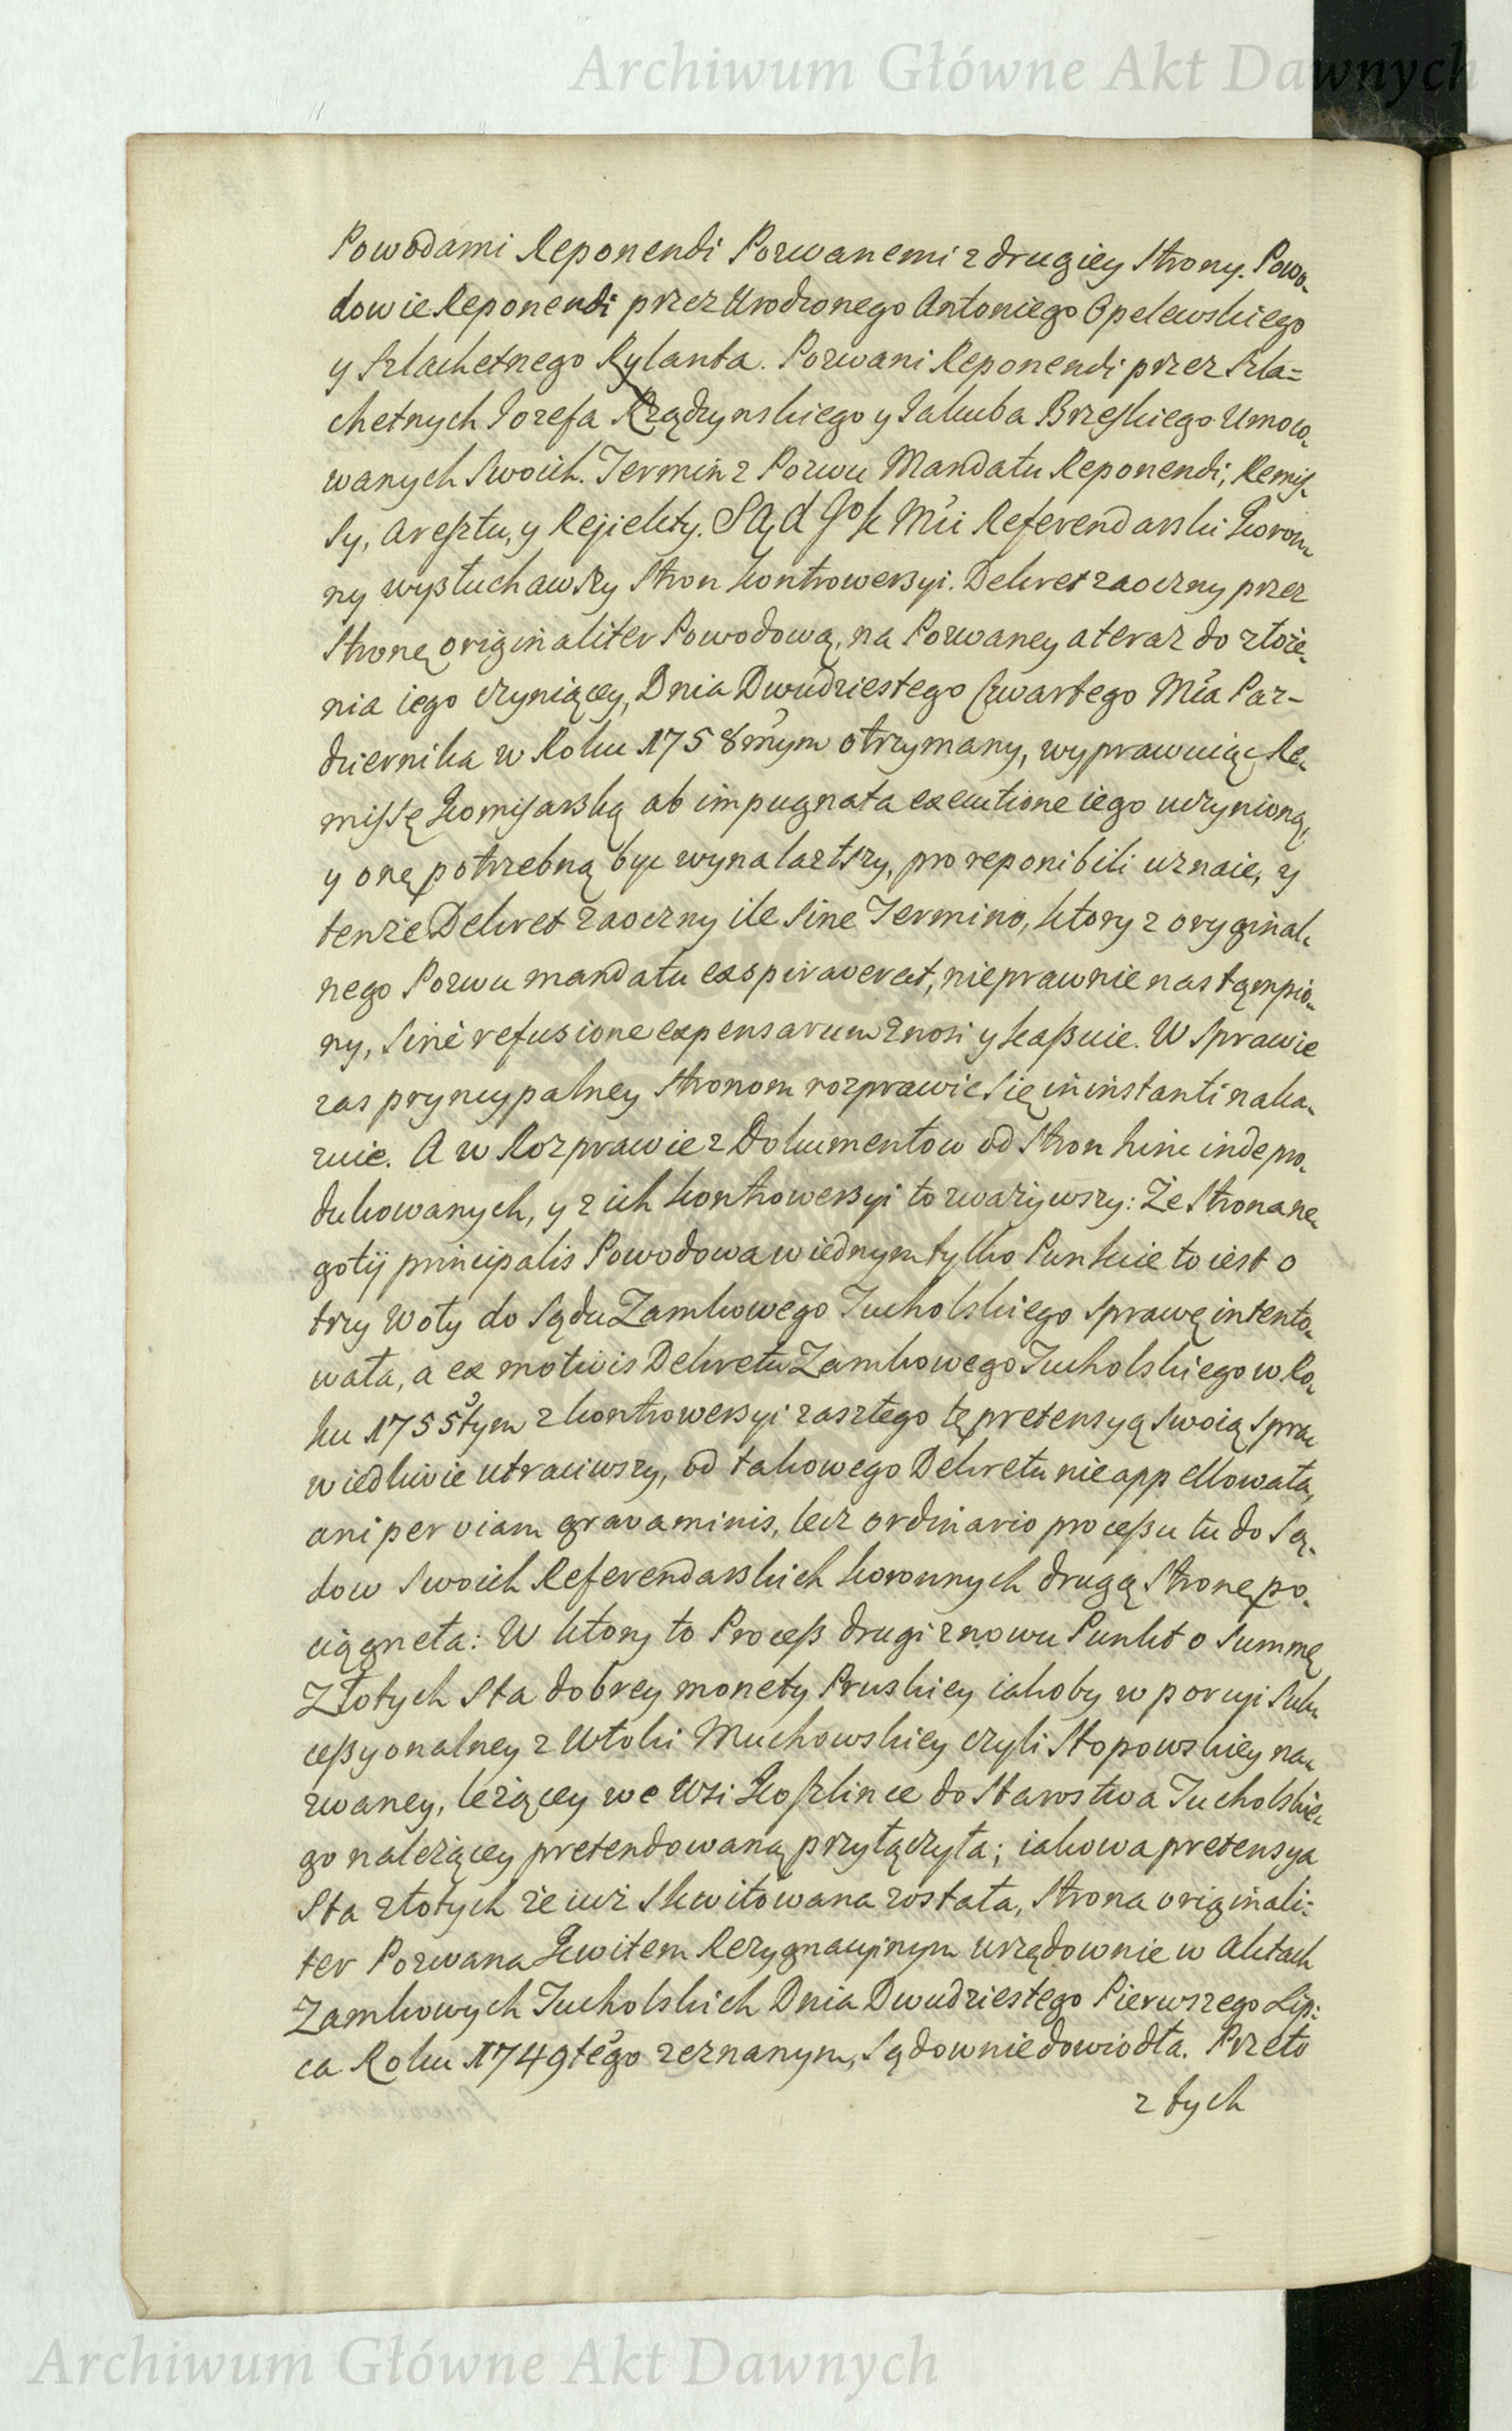 Archiwum Główne Akt Dawnych
Powodami Reponendi Pozwanemi z drugiey Strony. Powo-
dowie Reponendi przez Urodzonego Antoniego Opelewskiego
y Szlachetnego Rylanta. Pozwani Reponendi przez Szla=
chetnych Jozefa Krządzynskiego y Jakuba Brzeskiego Umoco-
wanych Swoich. Termin z Pozwu Mandatu Reponendi, Remis-
sy, Aresztu, y Rejiekty. Sąd JoK Mci Referendarski Koron-
ny wysłuchawszy Stron kontrowersyi. Dekret zaoczny przez
Stronę originaliter Powodową, na Pozwaney a teraz do złoże-
nia iego czyniącey, Dnia Dwudziestego Czwartego Mca Paz-
dziernika w Roku 1758mym otrzymany, wyprawuiąc Re-
missę Komisarską ab impugnata executione iego uczynioną,
y onę potrzebną być wynalazłszy, pro reponibili uznaie, y
tenże Dekret zaoczny ile Sine Termino, ktory z oryginal-
nego Pozwu mandatu exspiraverat, nieprawnie nastąmpio-
ny, Sine refusione expensarum Znosi y kassuie. W Sprawie
zas pryncypalney Stronom rozprawic Się in instanti naka-
zuie. A w Rozprawie z Dokumentow od Stron hinc inde pro-
dukowanych, y z ich kontrowersyi to zważywszy: Że Strona ne-
gotij principalis Powodowa w iednym tylko Punkcie to iest o
trzy Woły do Sądu Zamkowego Tucholskiego Sprawę intento-
wała, a ex motivis Dekretu Zamkowego Tucholskiego w Ro-
ku 1755tym z kontrowersyi zaszłego tę pretensyą Swoią Spra-
wiedliwie utraciwszy, od takowego Dekretu nie appellowała,
ani per viam gravaminis, lecz ordinario processu tu do Są-
dow Swoich Referendarskich koronnych drugą Stronę po-
ciągneła: W ktory to Process drugi znowu Punkt o Summę
Złotych Sta dobrey monety Pruskiey iakoby w porcyi Suk-
cessyonalney z Włoki Muchowskiey czyli Stopowskiey na-
zwaney, leżącey we Wsi Koszlince do Starostwa Tucholskie-
go należącey pretendowaną przyłączyła; iakowa pretensya
Sta złotych że iuż Skwitowana została, Strona originali=
ter Pozwana Kwitem Rezygnacyinym urzędownie w Aktach
Zamkowych Tucholskich Dnia Dwudziestego Pierwszego Lip-
ca Roku 1749tego zeznanym, Sądownie dowiodła. Przeto
z tych
Archiwum Główne Akt Dawnych